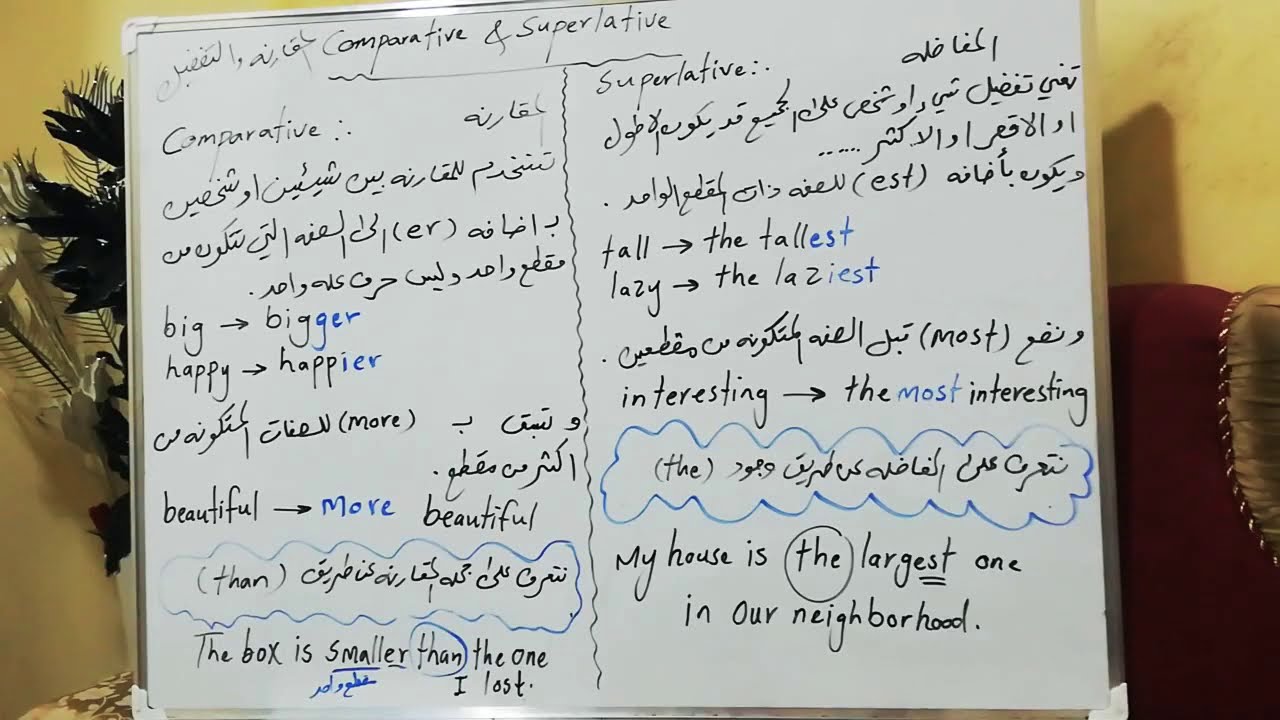 المقارنه والتفضيل Comparative & Superlative
Comparative :. المقارنه
تستخدم للمقارنه بين شيئين او شخصين
بـ اضافه (er) الى الصفه التي تتكون من
مقطع واحد وليس حرف عله واحد.
big → bigger
happy → happier
و تسبق بـ (more) للصفات المتكونه من
اكثر من مقطع.
beautiful → more beautiful
نتعرف على جمله المقارنه عن طريق (than)
The box is smaller than the one
I lost.
مقطع واحد
Superlative :. المفاضله
تعني تفضيل شيء او شخص على الجميع قد يكون الاطول
او الاقصر او الاكثر ......
ويكون بأضافه (est) للصفه ذات المقطع الواحد .
tall → the tallest
lazy → the laziest
و نضع (most) قبل الصفه المتكونه من مقطعين .
interesting → the most interesting
نتعرف على المفاضله عن طريق وجود (the)
My house is the largest one
in our neighborhood.